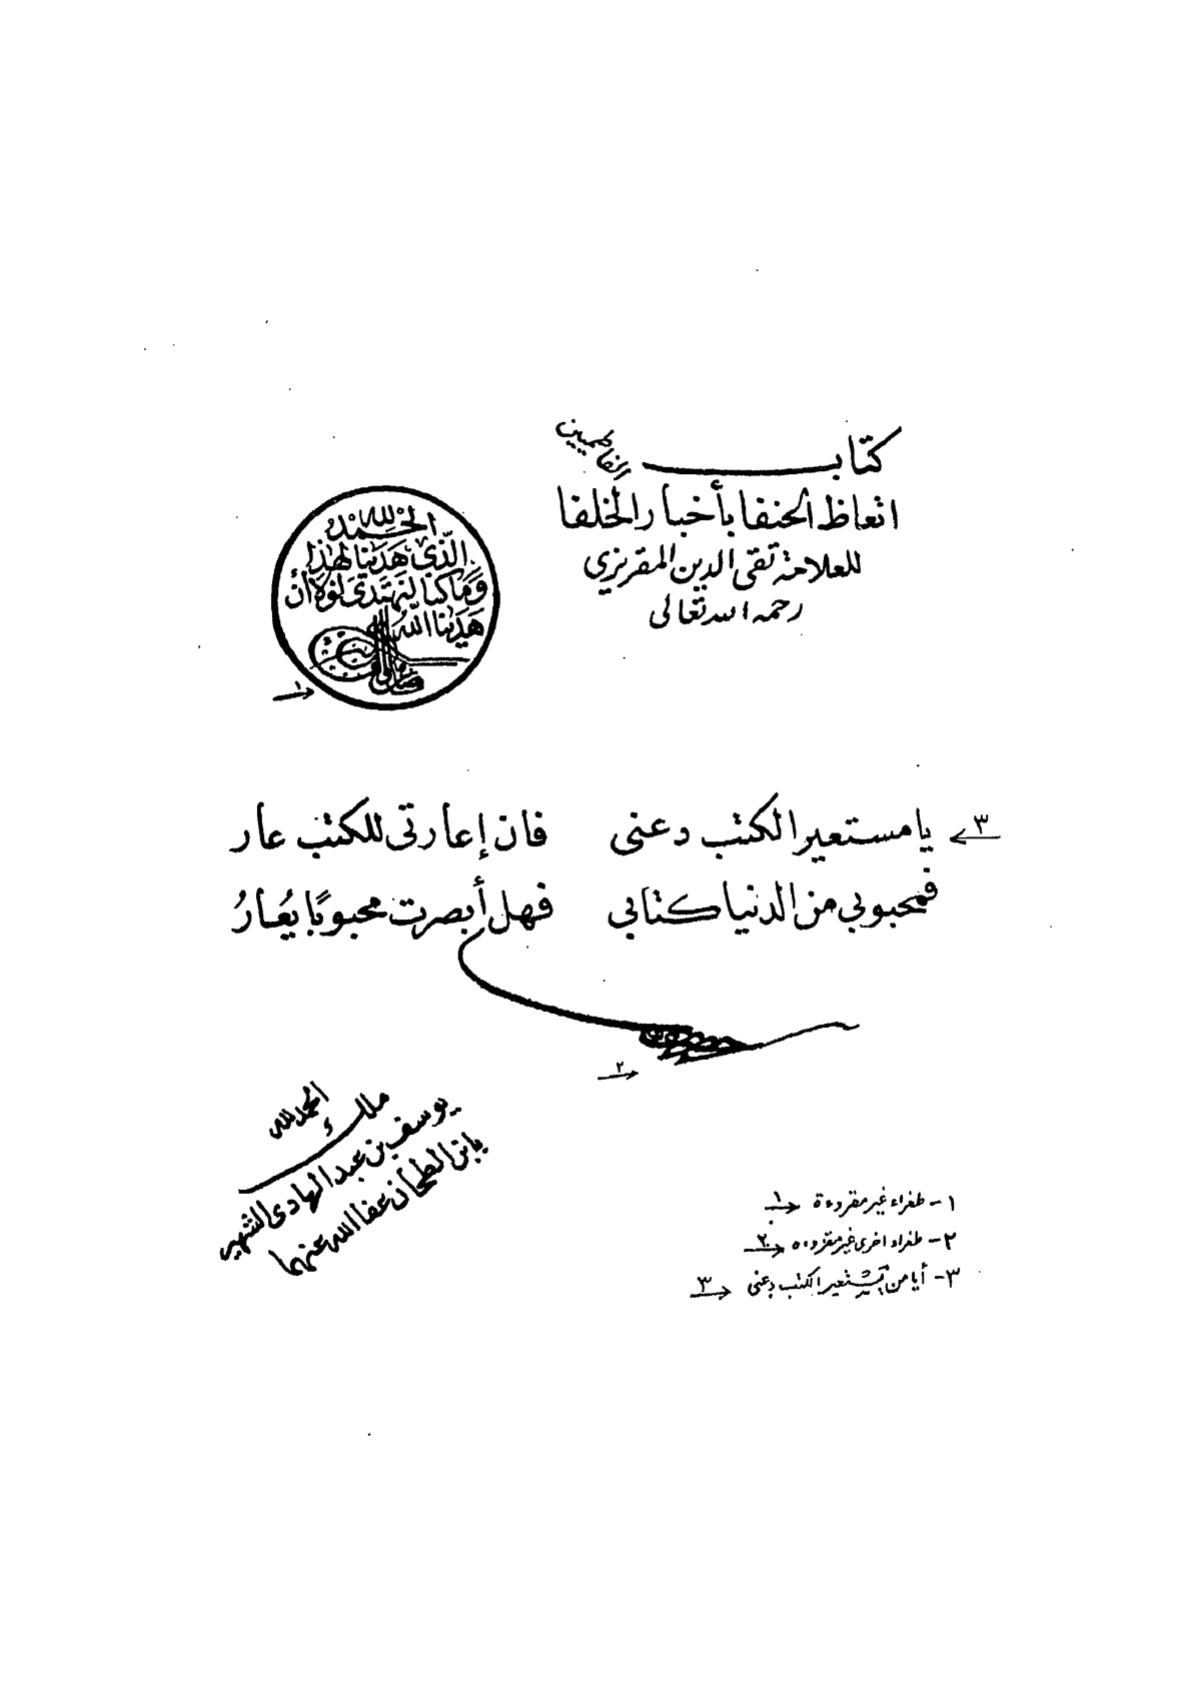 كتاب
الفاطميين
اتعاظ الحنفا بأخبار الخلفا
للعلامة تقى الدين المقريزي
رحمه الله تعالى
الحمد لله
الذى هدينا لهذا
وما كنا لنهتدى لولا أن
هدينا الله
١
٣ يا مستعير الكتب دعنى فان إعارتى للكتب عار
فمحبوبي من الدنيا كتابي فهل أبصرت محبوبًا يُعارُ
٢
الحمد لله
ملك
يوسف بن عبد الهادى الشهير
بابن الطحان عفا الله عنهما
١- طغراء غير مقروءة ١
٢- طغراء اخرى غير مقروءه ٢
٣- أيا من تستعير الكتب دعنى ٣